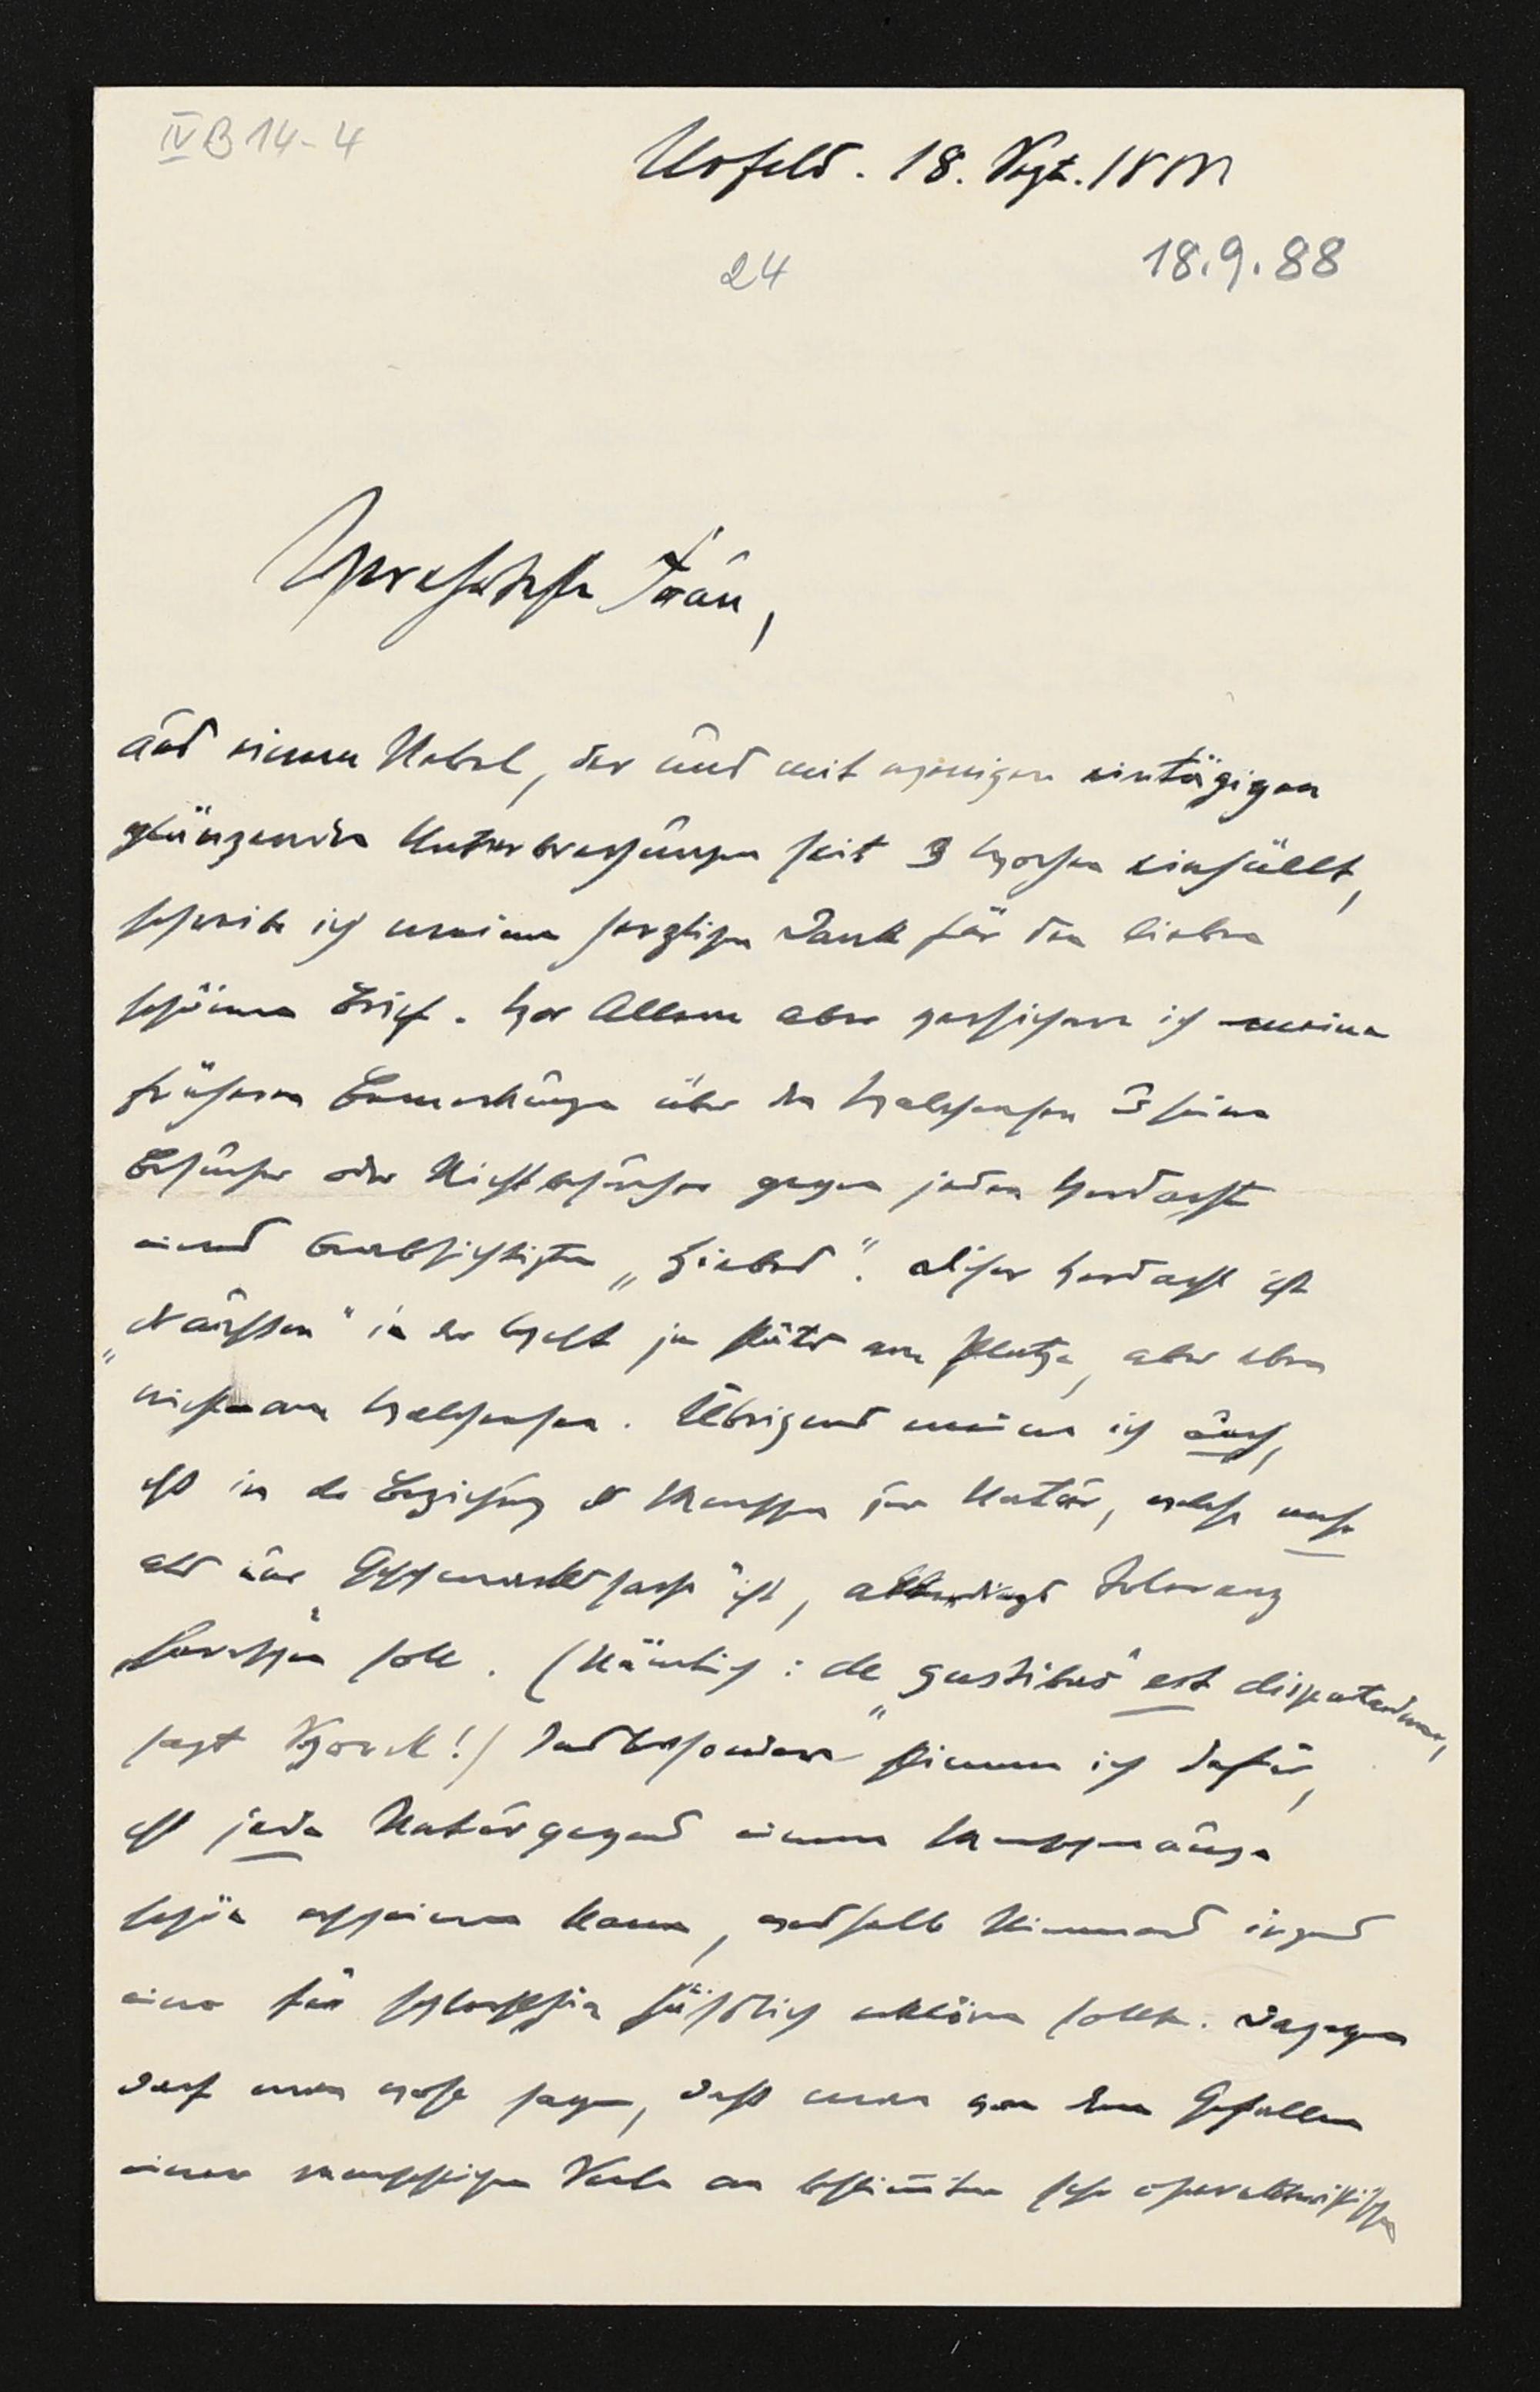 IV B 14-4
Urfeld. 18. Sept. 1888
24
18.9.88
Verehrteste Frau,
aus einem Nebel, der uns mit wenigen eintägigen
glänzenden Unterbrechungen seit 3 Wochen einhüllt,
schreibe ich meinen herzlichen Dank für den lieben
schönen Brief. Vor Allem aber versichere ich meine
früheren Bemerkungen über den Walchensee u seine
Besucher oder Nichtbesucher gegen jeden Verdacht
eines beabsichtigten „Hiebes". Dieser Verdacht ist
„draußen" in der Welt ja stets am Platze, aber eben
nicht am Walchensee. Übrigens meine ich auch,
dß in der Beziehung d Menschen zur Natur, welche mehr
als nur „Geschmackssache" ist, allerdings Toleranz
herrschen soll. (Nämlich: de „gustibus" est disputandum,
sagt Schorck!) Insbesondere stimme ich dafür,
dß jede Naturgegend einem Menschenauge
schön erscheinen kann, weshalb Niemand irgend
eine für schlechthin häßlich erklären sollte. Dagegen
darf man wohl sagen, daß man von dem Gefallen
einer menschlichen Seele an bestimmten sehr charakteristischen